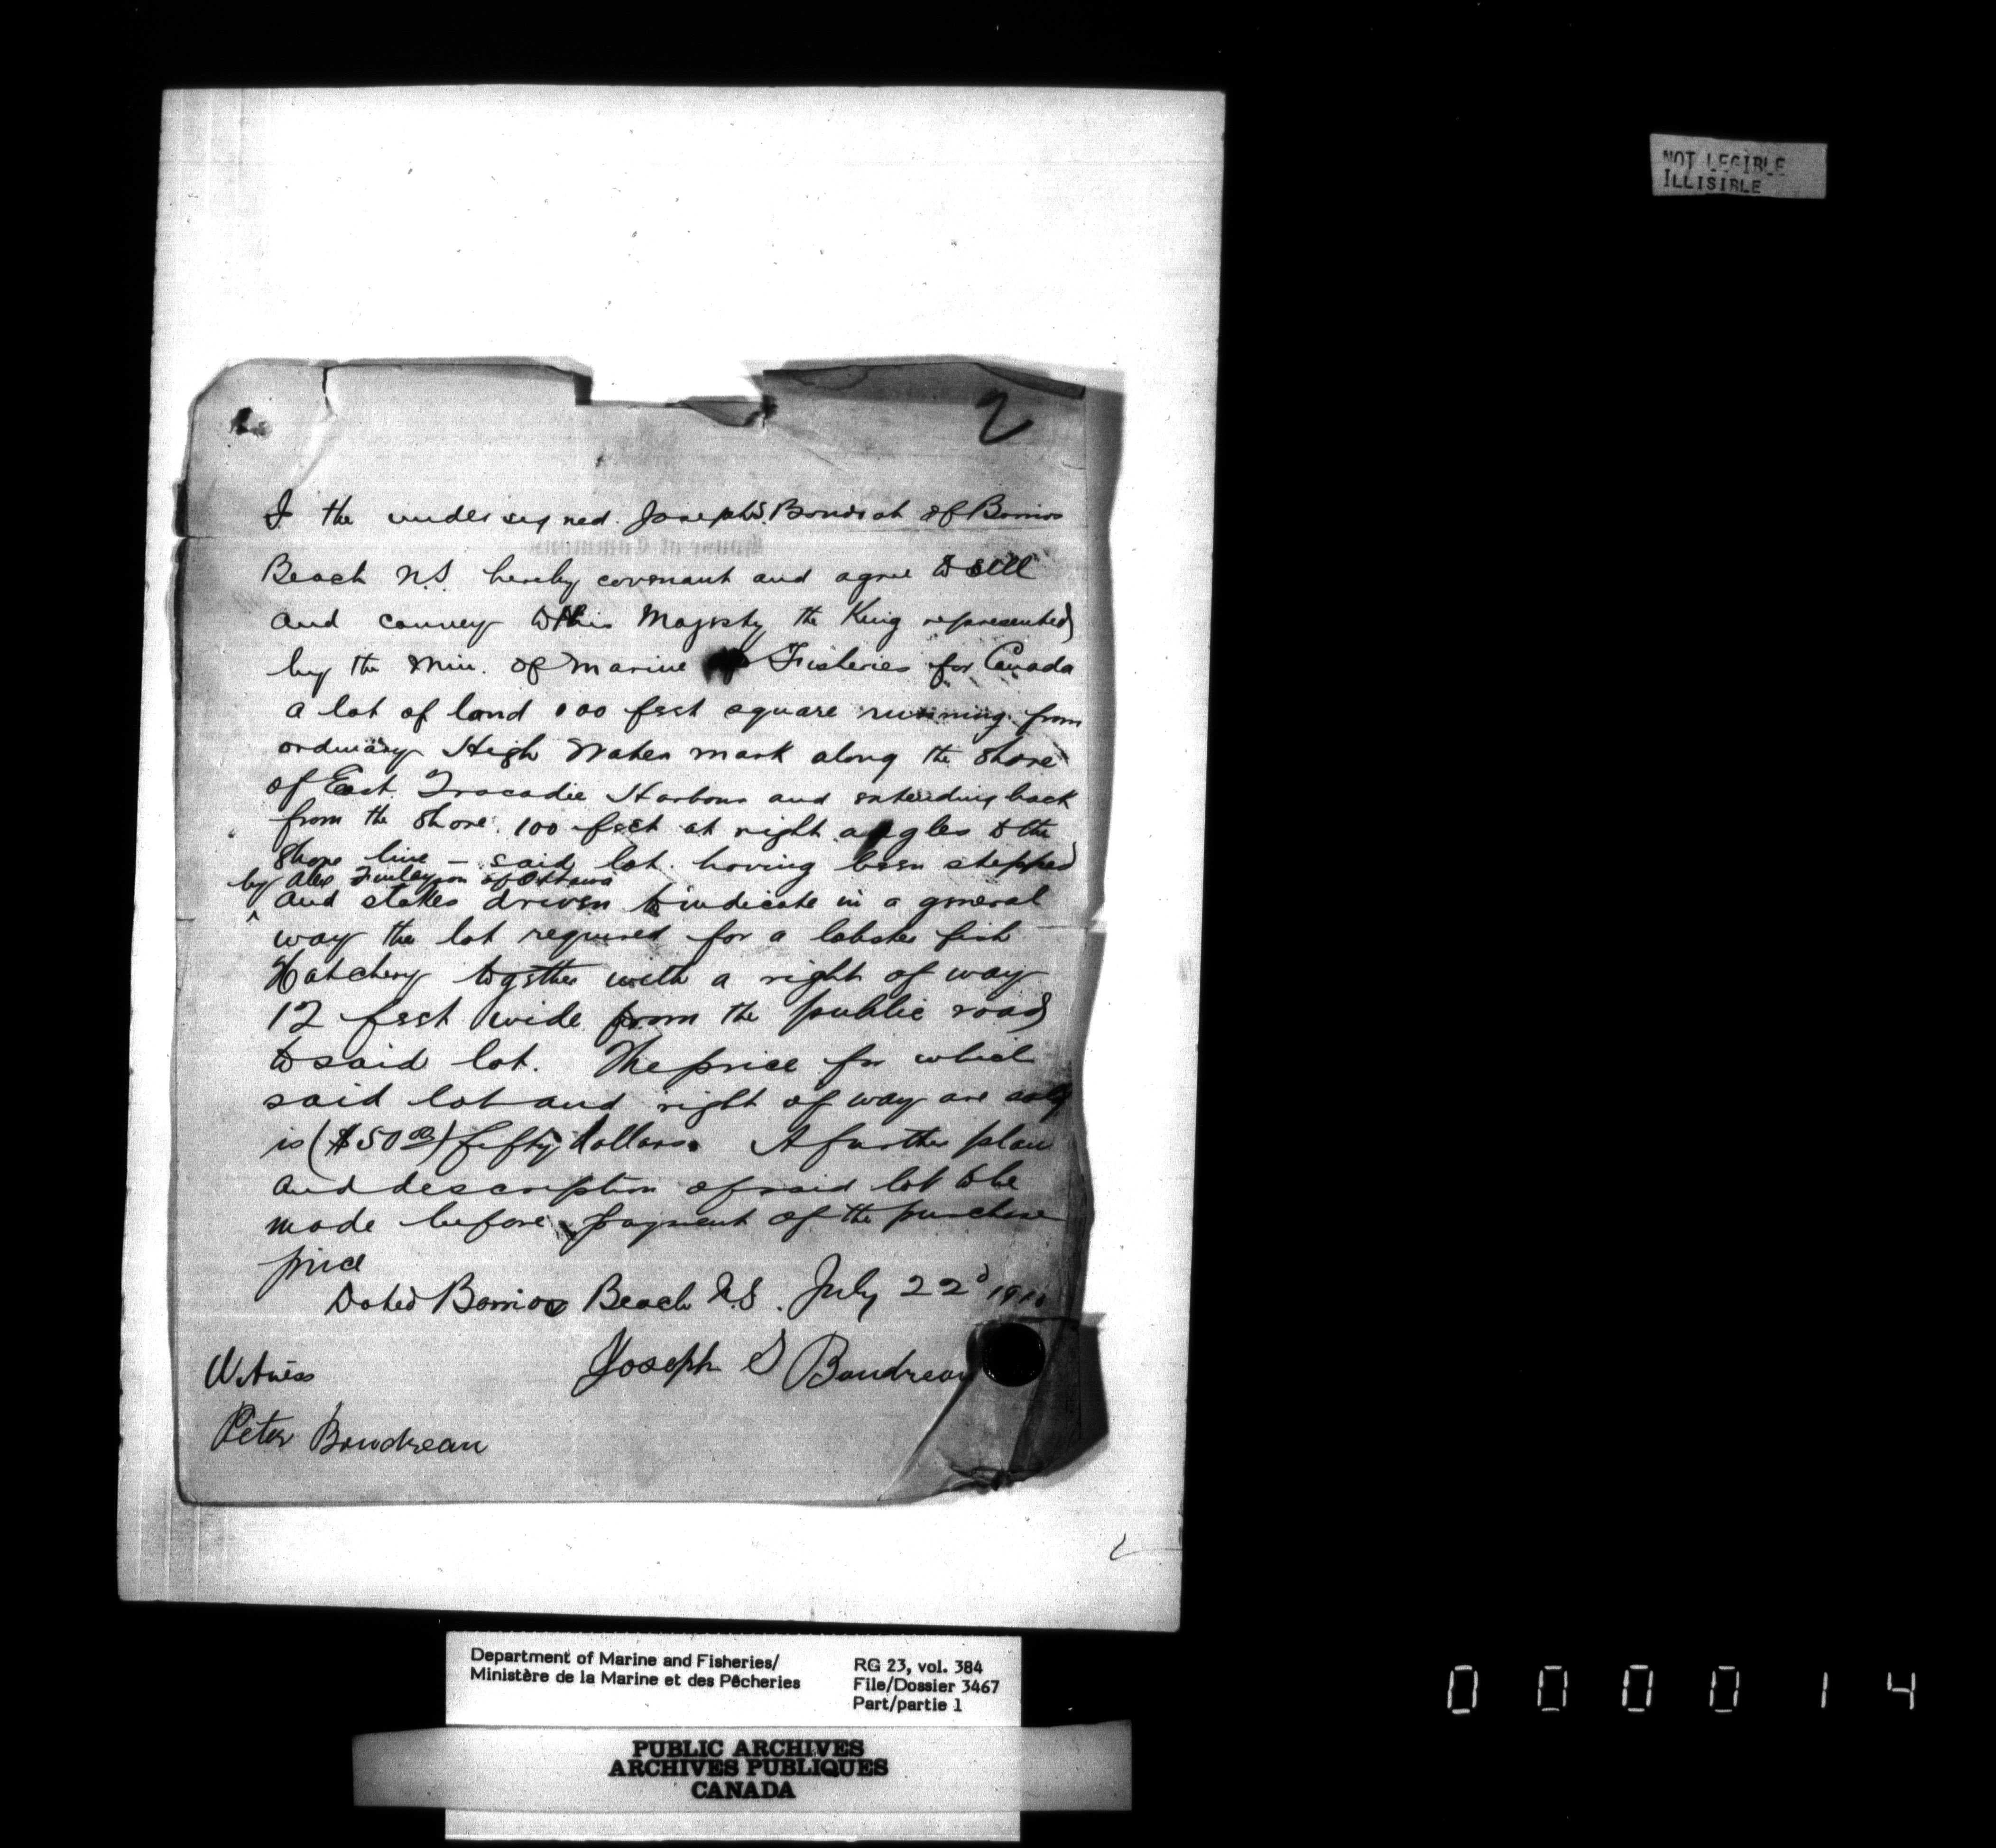 NOT LEGIBLE
ILLISIBLE
2
I the undersigned Joseph S. Boudrot of Barrios
House of Commons
Beach N.S. hereby covenant and agree to sell
and convey to His Majesty the King represented
by the Min. of Marine Fisheries for Canada
a lot of land 100 feet square running from
ordinary High Water mark along the shore
of East Tracadie Harbour and extending back
from the shore 100 feet at right angles to the
shore line – said lot having been stepped
by Alex Finlayson of Ottawa
and stakes driven to indicate in a general
way the lot required for a lobster fish
Hatchery together with a right of way
12 feet wide from the public road
to said lot. The price for which
said lot and right of way are sold
is ($50.00) fifty dollars. A further plan
and description of said lot to be
made before payment of the purchase
price
Dated Barrios Beach N.S. July 22d 1910
Joseph S Boudreau
Witness
Peter Boudreau
2
Department of Marine and Fisheries/
Ministère de la Marine et des Pêcheries
RG 23, vol. 384
File/Dossier 3467
Part/partie 1
PUBLIC ARCHIVES
ARCHIVES PUBLIQUES
CANADA
000014